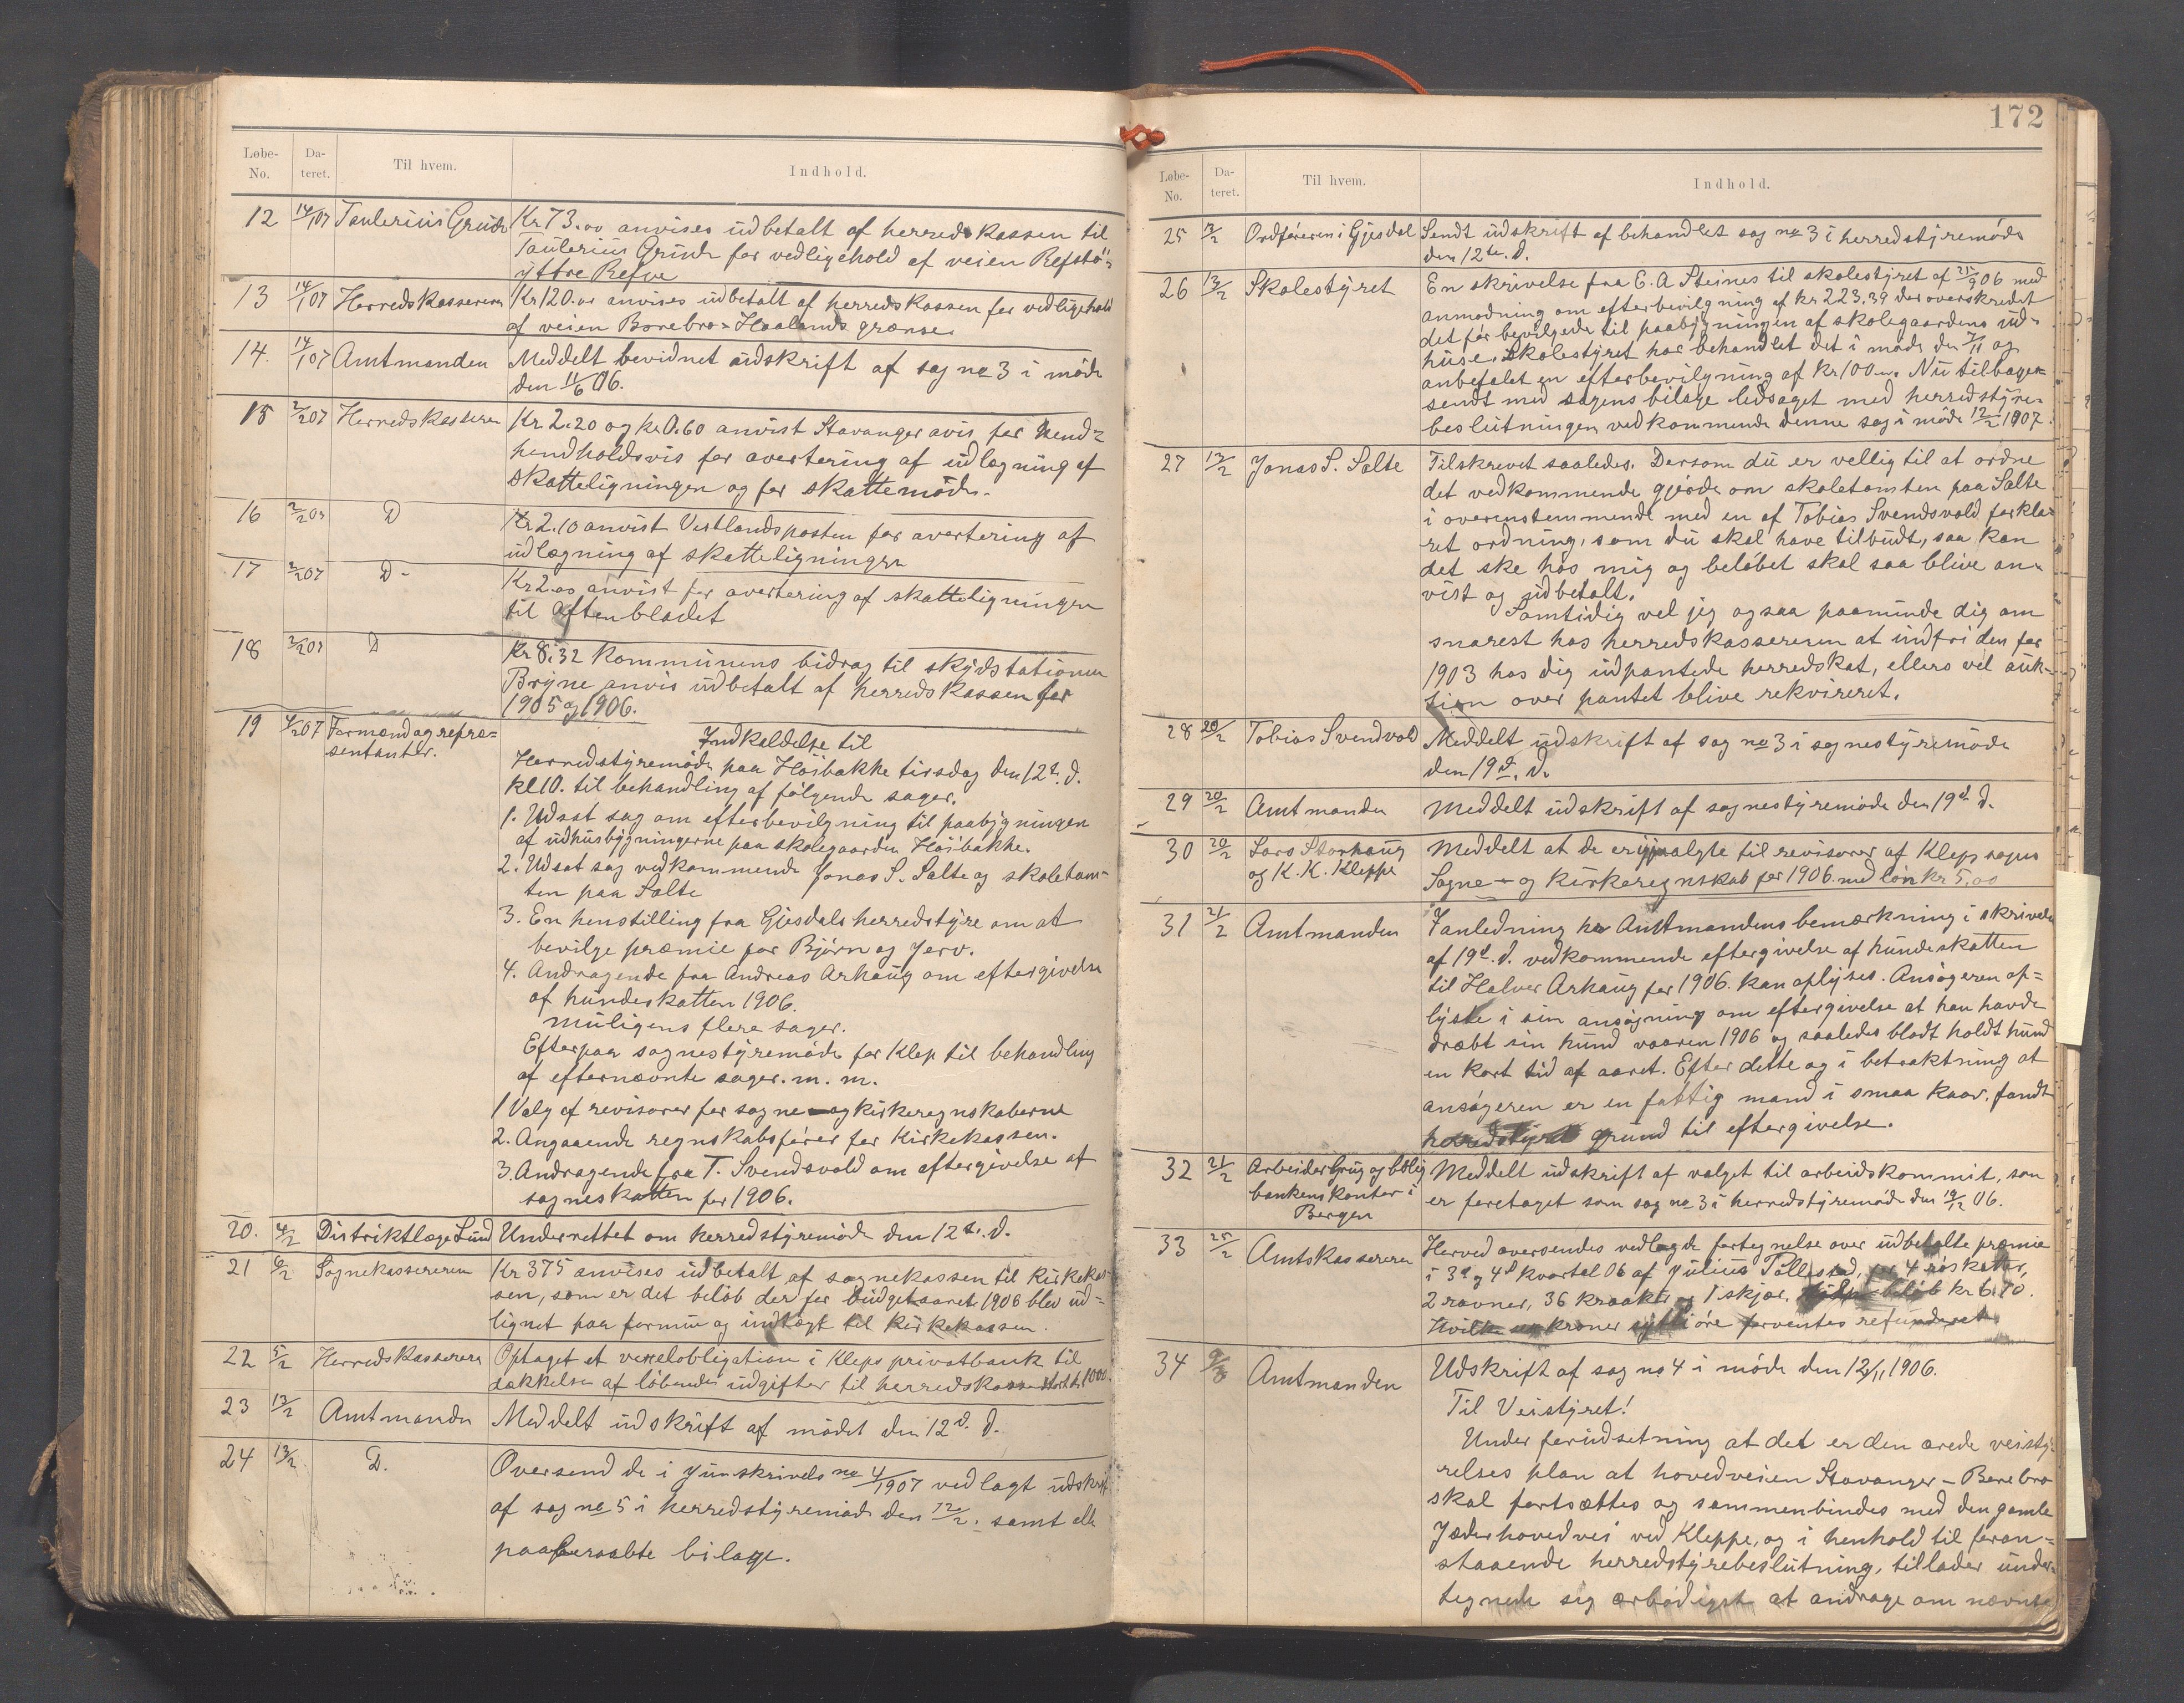 Løbe-No. Dateret. Til hvem. Indhold.
12 14/1 07 Taulerius Grude Kr 73.00 anvises udbetalt af herredskassen til
Taulerius Grude for vedligehold af veien Refstø-
yttre Refve
13 14/1 07 Herredskassereren Kr 120.00 anvises udbetalt af herredskassen for vedligehold
af veien Borebro-Haalands grænse
14. 14/1 07 Amtmanden Meddelt bevidnet udskrift af sag no 3 i møde
den 11/6 06.
15 2/2 07 Herredskasseren Kr. 2.20 og kr 0.60 anvist Stavanger avis for hend-
hendholdsvis for avertering af udlægning af
skatteligningen og for skattemøde.
16 2/2 07 D Kr 2.10 anvist Vestlandsposten for avertering af
udlægning af skatteligningen
17 2/2 07 D- Kr 2.00 anvist for avertering af skatteligningen
til Aftenbladet
18 2/2 07 D Kr 8.32 kommunens bidrag til skydsstationen
Bryne anvis udbetalt af herredskassen for
1905 og 1906.
19 4/2 07 Formænd og repræ-
sentanter.
Indkaldelse til
Herredstyremøde paa Høibakke tirsdag den 12te d.
kl 10. til behandling af følgende sager.
1. Udsat sag om efterbevilgning til paabygningen
af udhusbygningerne paa skolegaarden Høibakke.
2. Udsat sag vedkommende Jonas S. Salte og skoletom-
ten paa Salte
3. En henstilling fra Gjesdals herredstyre om at
bevilge præmie for Bjørn og Jerv.
4. Andragende fra Andreas Arhaug om eftergivelse
af hundeskatten 1906.
Muligens flere sager.
Efterpaa sognestyremøde for Klep til behandling
af efternævnte sager. m. m.
1 Valg af revisorer for sogne- og kirkeregnskaberne
2. Angaaende regnskabsfører for Kirkekassen.
3. Andragende fra T. Svendsvold om eftergivelse af
sogneskatten for 1906.
20. 4/2 Distriktlæge Lund Underrettet om herredstyremøde den 12te. d.
21 6/2 Sognekassereren Kr 375 anvises udbetalt af sognekassen til Kirkekas-
sen, som er det beløb der for budgetaaret 1906 blev ud-
lignet paa formue og indtægt til Kirkekassen.
22 5/2 Herredskassereren Optaget et vexelobligation i Kleps privatbank til
dækkelse af løbende udgifter til herredskassen stort kr 1000.
23 13/2 Amtmanden Meddelt udskrift af mødet den 12 d. d.
24 13/2 D. Oversend de i Jun skrivels no 4/1907 vedlagt udskrift
af sag no 5 i herredstyremøde den 12/2. samt alle
paaberaabte bilage.
172
Løbe-No. Dateret. Til hvem. Indhold.
25 13/2 Ordføreren i Gjesdal Sendt udskrift af behandlet sag no 3 i herredstyremøde
den 12te. d.
26 13/2 Skolestyret En skrivelse fra E. A Steines til skolestyret af 25/9 06 med
anmodning om efterbevilgning af kr 223.39 der overskredet
det før bevilgede til paabygningen af skolegaardens ud-
huse. Skolestyret har behandlet det i møde den 2/11 og
anbefalet en efterbevilgning af Kr 100.00. Nu tilbage-
sendt med sagens bilage ledsaget med herredstyre-
beslutningen vedkommende denne sag i møde 12/2 1907.
27 13/2 Jonas S. Salte Tilskrevet saaledes. Dersom du er vellig til at ordne
det vedkommende gjerde om skoletomten paa Salte
i overenstemmende med en af Tobias Svendsvold forkla-
ret ordning, som du skal have tilbudt, saa kan
det ske hos mig og beløbet skal saa blive an-
vist og udbetalt.
Samtidig vel jeg ogsaa paaminde dig om
snarest hos herredskassereren at indfri den for
1903 hos dig udpantede herredskat, ellers vel auk-
sion over pantet blive rekvireret.
28 20/2 Tobias Svendvold Meddelt udskrift af sag no 3 i sognestyremøde
den 19d. d.
29 20/2 Amtmanden Meddelt udskrift af sognestyremøde den 19d d.
30 20/2 Lars Storhaug
og K. K. Kleppe Meddelt at de er valgte til revisorer af Klep sogns
Sogne- og Kirkeregnskab for 1906. med løn kr 5,00
31 21/2 Amtmanden Ianledning hr Amtmandens bemærkning i skrivelse
af 19d. d. vedkommende eftergivelse af hundeskatten
til Halver Arhaug for 1906. kan oplyses. Ansøgeren op-
lyste i sin ansøgning om eftergivelse at han havde
dræbt sin hund vaaren 1906 og saaledes blodt holdt hund
en kort tid af aaret. Efter dette og i betraktning at
ansøgeren er en fattig mand i smaa kaar, fandt
herredstyret grund til eftergivelse.
32 21/2 Arbeider Brug og bolig
bankens kontor i
Bergen Meddelt udskrift af valget til arbeidskommit, som
er foretaget som sag no 3 i herredstyremøde den 19/12 06.
33 25/2 Amtskassereren Herved oversendes vedlagde fortegnelse over udbetalte præmie
i 3d og 4d kvartal 06 af Julius Tollestad, 4 røskatter,
2 ravner, 36 kraaker og 1 skjor. beløb kr 6.70.
Hvilke sex kroner sytti øre forventes refunderet
34 Amtmanden Udskrift af sag no 4 i møde den 12/11 1906.
Til Veistyret!
Under forudsetning at det er den ærede veisty-
relses plan at hovedveien Stavanger - Borebro
skal fortsættes og sammenbindes med den gamle
Jæderhovedvei ved Kleppe, og i henhold til foran-
staaende herredstyrebeslutning, tillader under-
tegnede sig ærbødigst at andrage om nævnte